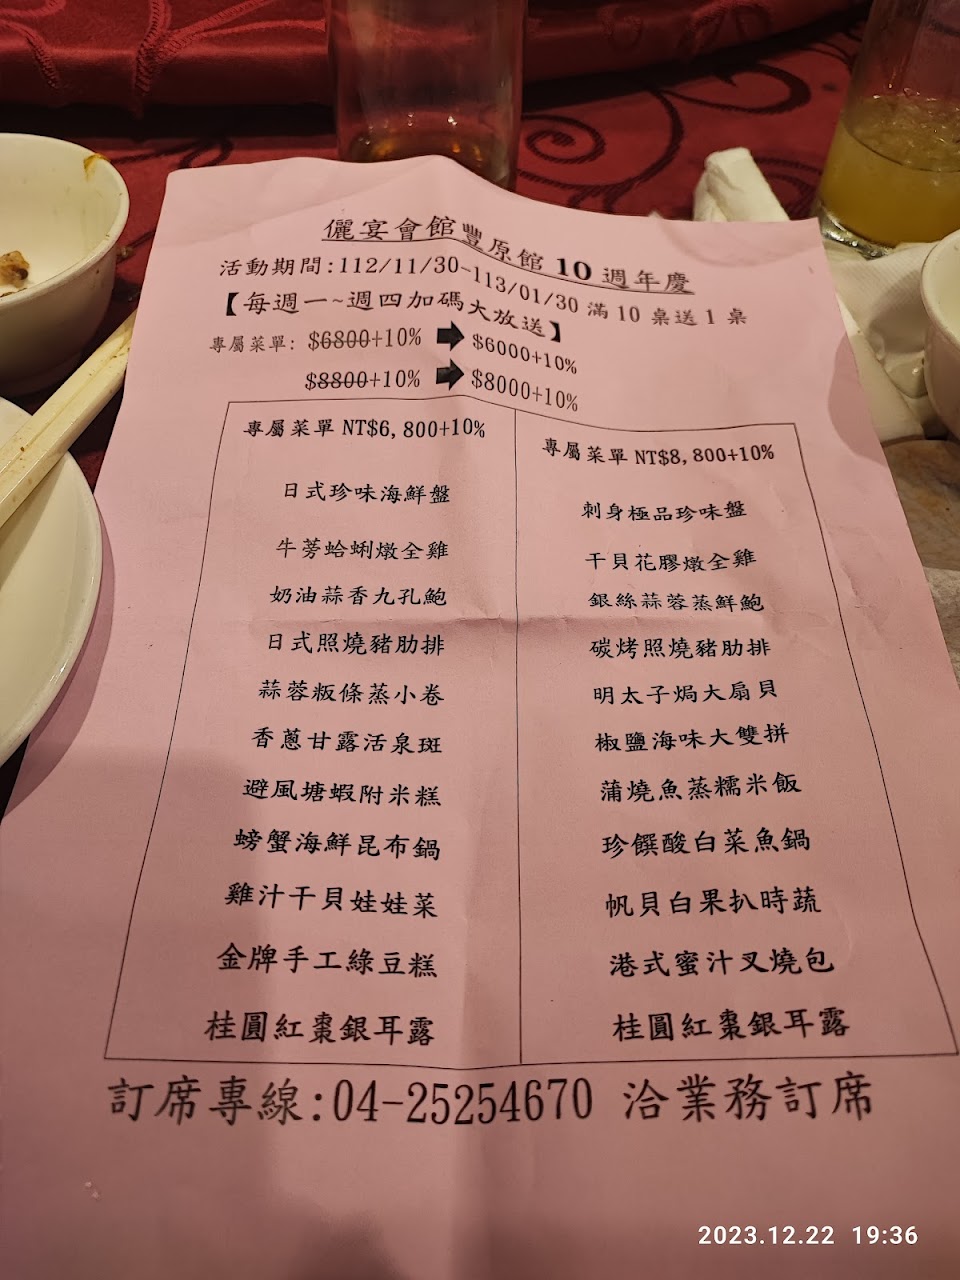 儷宴會館豐原館 10 週年慶
活動期間:112/11/30-113/01/30 滿 10 桌送 1 桌
【每週一~週四加碼大放送】
專屬菜單: $6800+10% ➡ $6000+10%
$8800+10% ➡ $8000+10%
專屬菜單 NT$6,800+10%
日式珍味海鮮盤
牛蒡蛤蜊燉全雞
奶油蒜香九孔鮑
日式照燒豬肋排
蒜蓉粄條蒸小卷
香蔥甘露活泉斑
避風塘蝦附米糕
螃蟹海鮮昆布鍋
雞汁干貝娃娃菜
金牌手工綠豆糕
桂圓紅棗銀耳露
專屬菜單 NT$8,800+10%
刺身極品珍味盤
干貝花膠燉全雞
銀絲蒜蓉蒸鮮鮑
碳烤照燒豬肋排
明太子焗大扇貝
椒鹽海味大雙拼
蒲燒魚蒸糯米飯
珍饌酸白菜魚鍋
帆貝白果扒時蔬
港式蜜汁叉燒包
桂圓紅棗銀耳露
訂席專線:04-25254670 洽業務訂席
2023.12.22 19:36